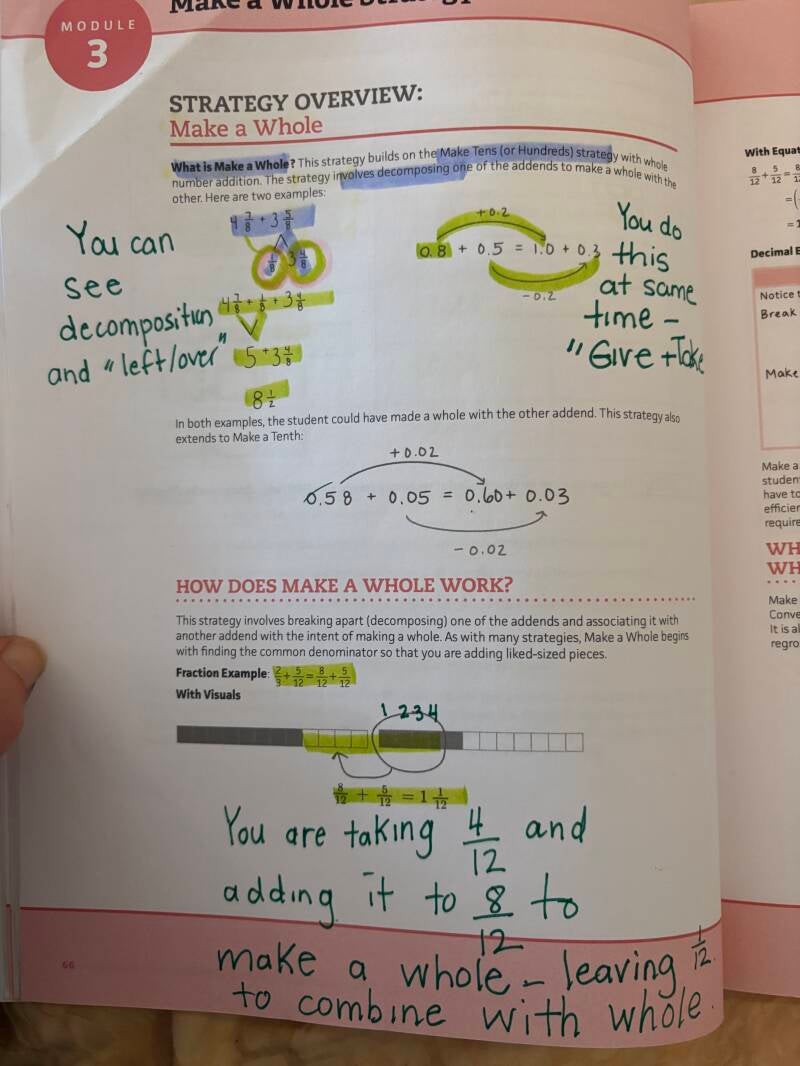 MODULE
3
Make a Whole
STRATEGY OVERVIEW:
Make a Whole
What is Make a Whole? This strategy builds on the Make Tens (or Hundreds) strategy with whole
number addition. The strategy involves decomposing one of the addends to make a whole with the
other. Here are two examples:
4 7/8 + 3 5/8
1/8 3 4/8
4 7/8 + 1/8 + 3 4/8
5 + 3 4/8
8 1/2
You can
see
decomposition
and "left/over"
+0.2
0.8 + 0.5 = 1.0 + 0.3
-0.2
You do
this
at same
time -
"Give + Take
In both examples, the student could have made a whole with the other addend. This strategy also
extends to Make a Tenth:
+0.02
0.58 + 0.05 = 0.60 + 0.03
-0.02
HOW DOES MAKE A WHOLE WORK?
This strategy involves breaking apart (decomposing) one of the addends and associating it with
another addend with the intent of making a whole. As with many strategies, Make a Whole begins
with finding the common denominator so that you are adding liked-sized pieces.
Fraction Example: 2/3 + 5/12 = 8/12 + 5/12
With Visuals
1 2 3 4
8/12 + 5/12 = 1 1/12
You are taking 4/12 and
adding it to 8/12 to
make a whole - leaving 1/12
to combine with whole.
66
With
8/12 + 5/12 =
=
= 1
Decimal
Notice
Break
Make
Make a
have to
require
WH
WH
Make
It is